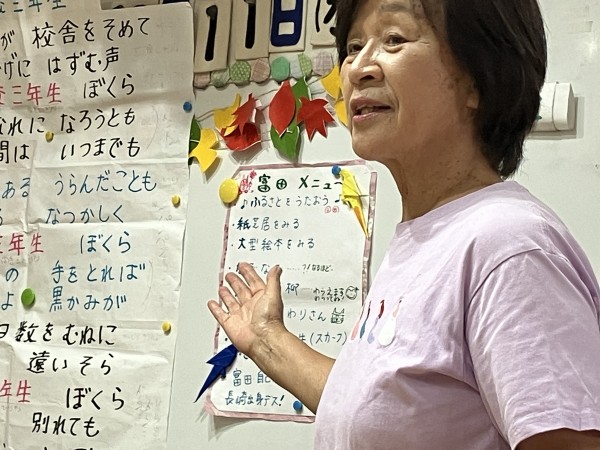 三年生
が 校舎をそめて
げに はずむ声
三年生 ぼくら
なれに なろうとも
間は いつまでも
ある うらんだことも
なつかしく
三年生 ぼくら
の 手をとれば
よ 黒かみが
日数をむねに
遠いそら
年生 ぼくら
別れても
11日
富田 メニュー
♪ふるさとをうたおう♪
・紙芝居をみる
・大型絵本をみる
な ……?!なるほど
柳
わりさん
(スカーフ)
富田
長崎出身デス!